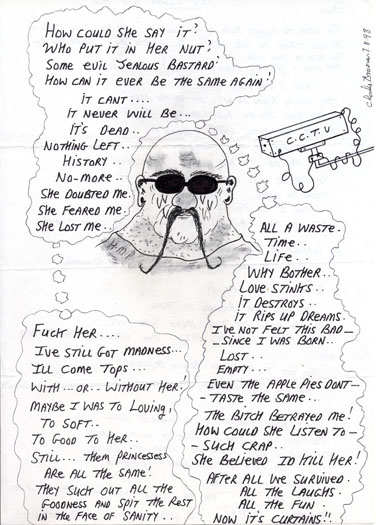 HOW COULD SHE SAY IT?
WHO PUT IT IN HER NUT?
SOME EVIL JEALOUS BASTARD.
HOW CAN IT EVER BE THE SAME AGAIN!
IT CANT....
IT NEVER WILL BE...
IT'S DEAD..
NOTHING LEFT..
HISTORY..
NO-MORE..
SHE DOUBTED ME.
SHE FEARED ME.
SHE LOST ME..
C.C.T.V
ALL A WASTE.
TIME..
LIFE..
WHY BOTHER..
LOVE STINKS..
IT DESTROYS..
IT RIPS UP DREAMS.
I'VE NOT FELT THIS BAD—
—SINCE I WAS BORN..
LOST..
EMPTY...
EVEN THE APPLE PIES DONT—
—TASTE THE SAME...
THE BITCH BETRAYED ME!
HOW COULD SHE LISTEN TO—
—SUCH CRAP..
SHE BELIEVED ID KILL HER!
AFTER ALL WE SURVIVED.
ALL THE LAUGHS.
ALL THE FUN.
NOW IT'S CURTAINS!!
FUCK HER....
I'VE STILL GOT MADNESS...
ILL COME TOPS...
WITH...OR..WITHOUT HER!
MAYBE I WAS TO LOVING,
TO SOFT..
TO GOOD TO HER..
STILL... THEM PRINCESSESS
ARE ALL THE SAME!
THEY SUCK OUT ALL THE
GOODNESS AND SPIT THE REST
IN THE FACE OF SANITY..